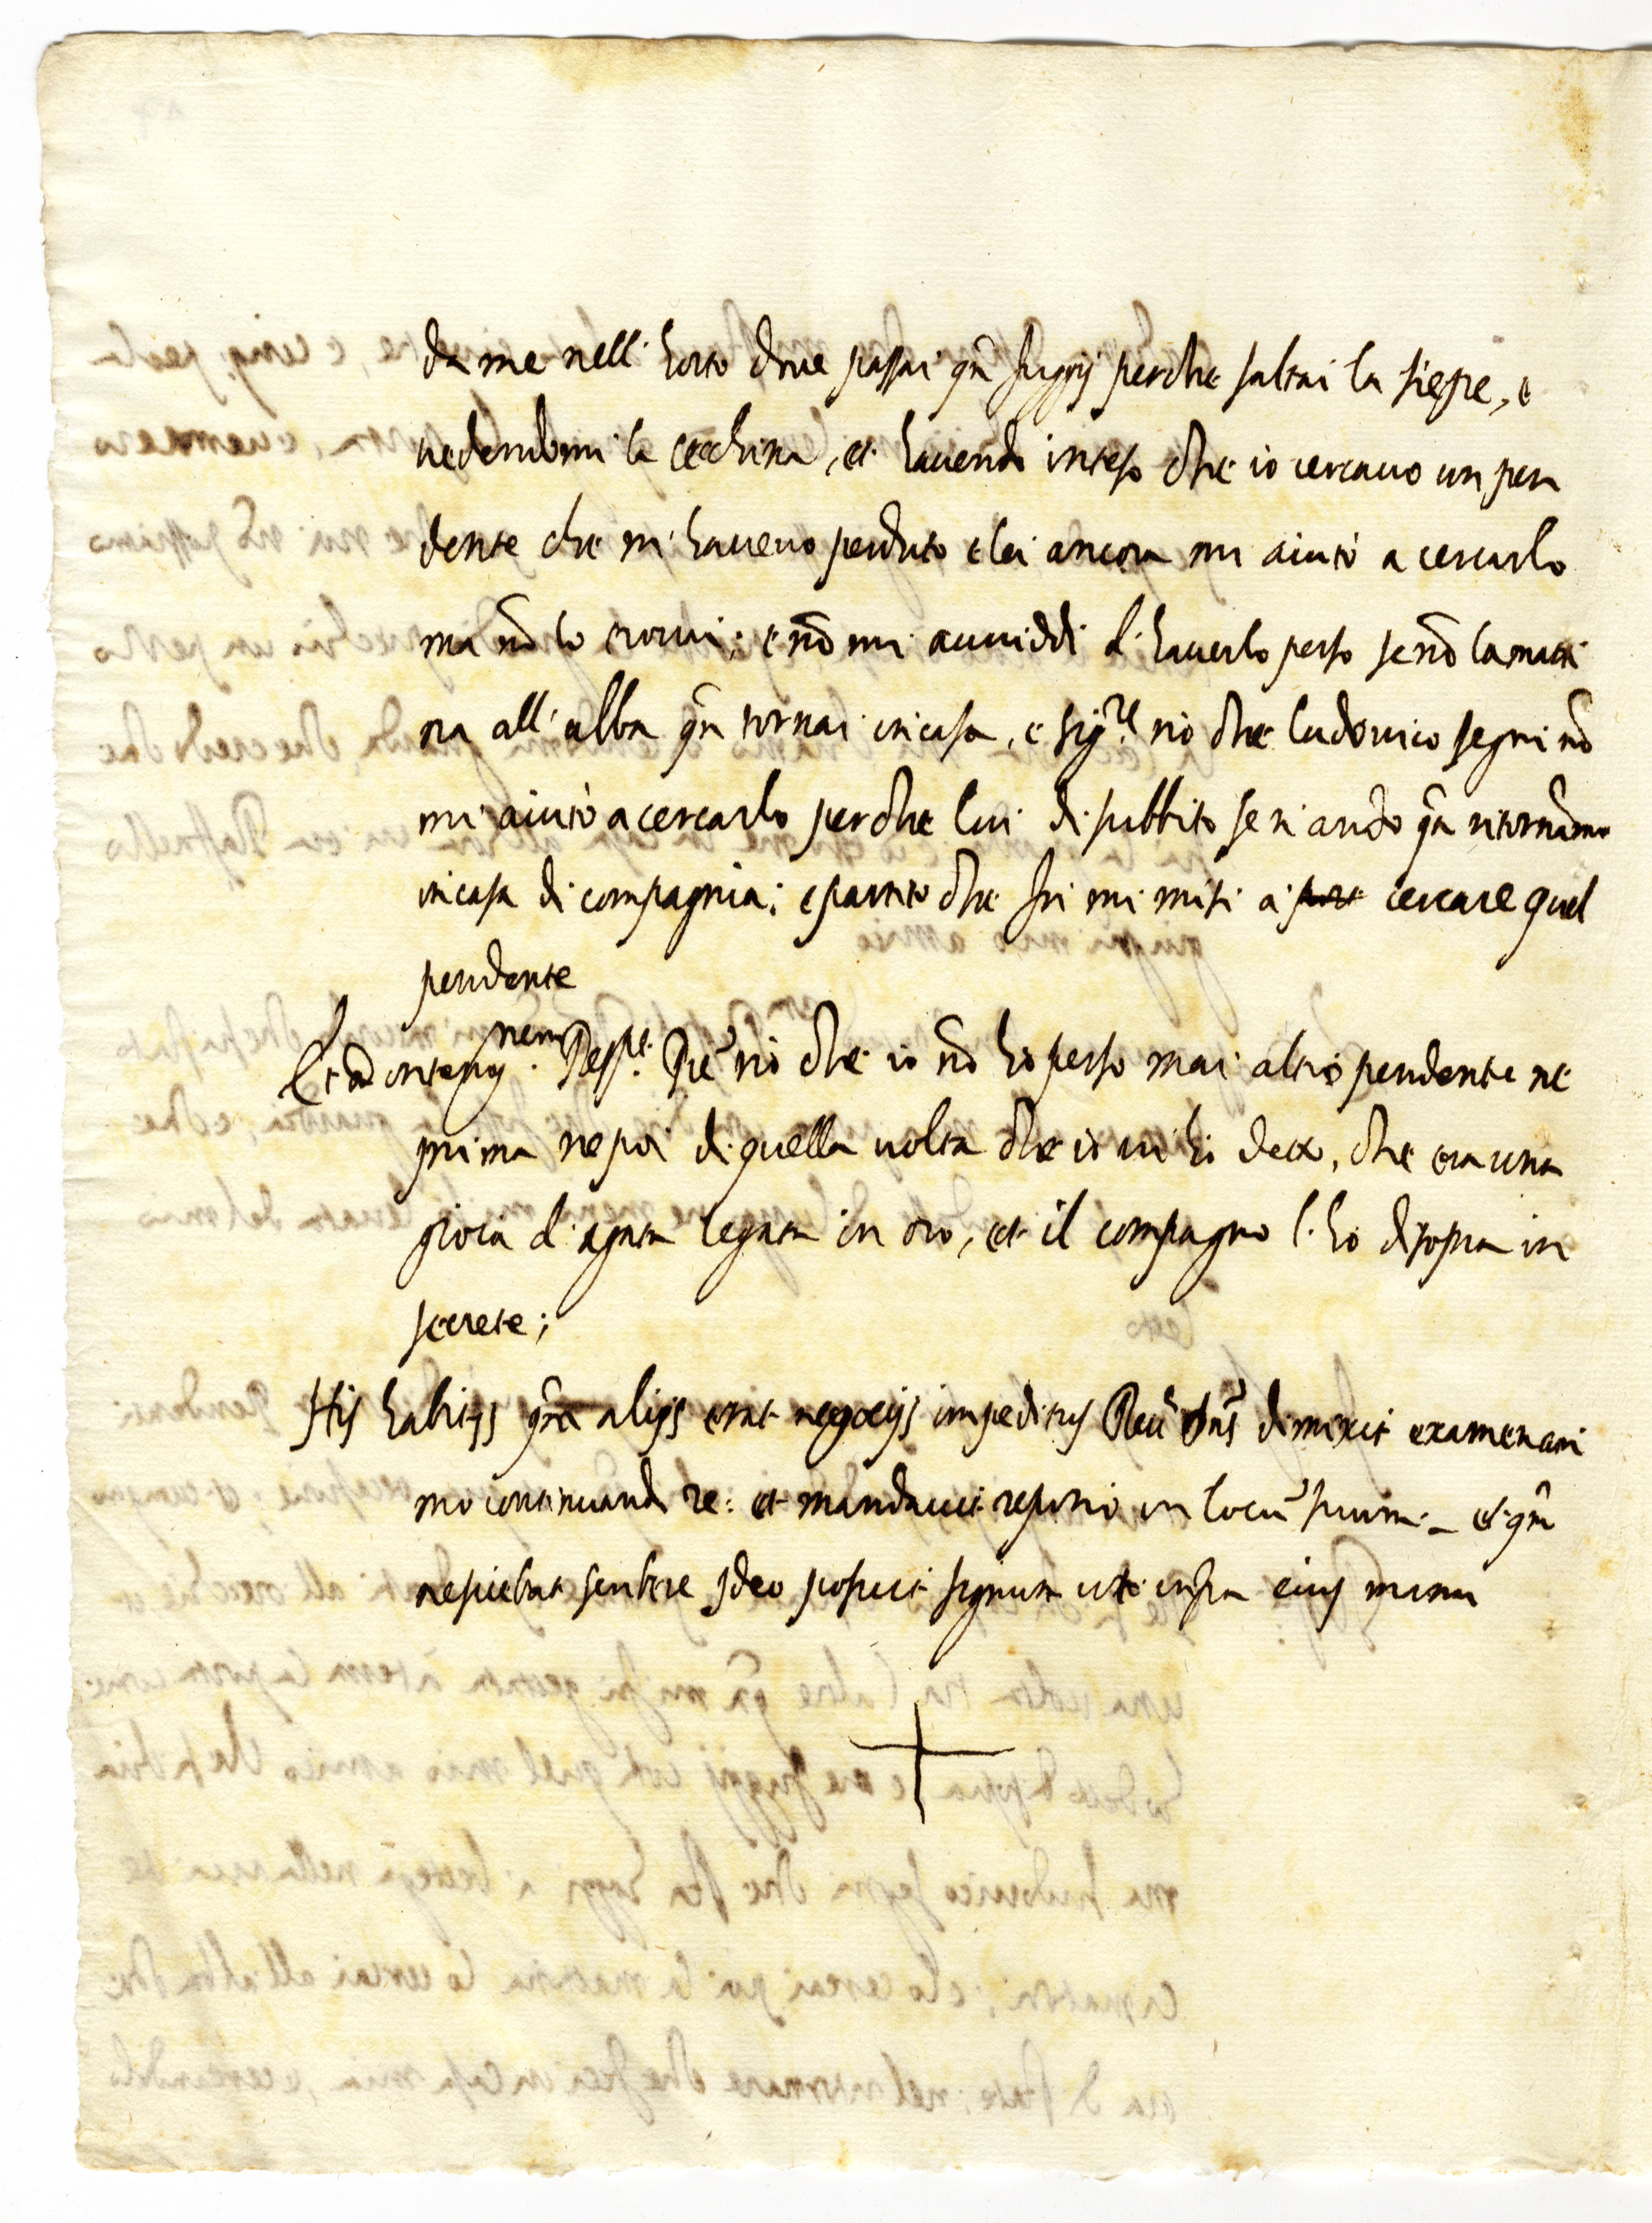 da me nell' horto doue passai qñ fuggij perche saltai la siepe, e
uedendomi la cecchina, et hauendo inteso che io cercauo un pen
dente che m' haueuo perduto e lei ancora mi aiutò a cercarlo
ma nõ lo trouai; e nõ mi auuiddi d' hauerlo perso se nõ la matti
na all' alba qñ tornai in casa, e sig.re nò che ludouico segni nõ
mi aiutò a cercarlo perche lui di subbito se n' andò qñ ritornãmo
in casa di compagnia; e partito che fu mi misi a cercare quel
pendente
Et ad interrog.nem Resp.t P.re nò che io nõ hò perso mai altro pendente ne
prima ne poi di quella uolta che io ui hò detto, che era una
gioia d' agata legata in oro, et il compagno l' hò di sopra in
secrete;
His habitis qm̃ alijs erat negocijs impeditus Reu. Dñs dimixit examen ani
mo continuandi re: et mandauit reponi in locũ suum. et qm̃
nesciebat scribere ideo posuit signum uti infra eius manu